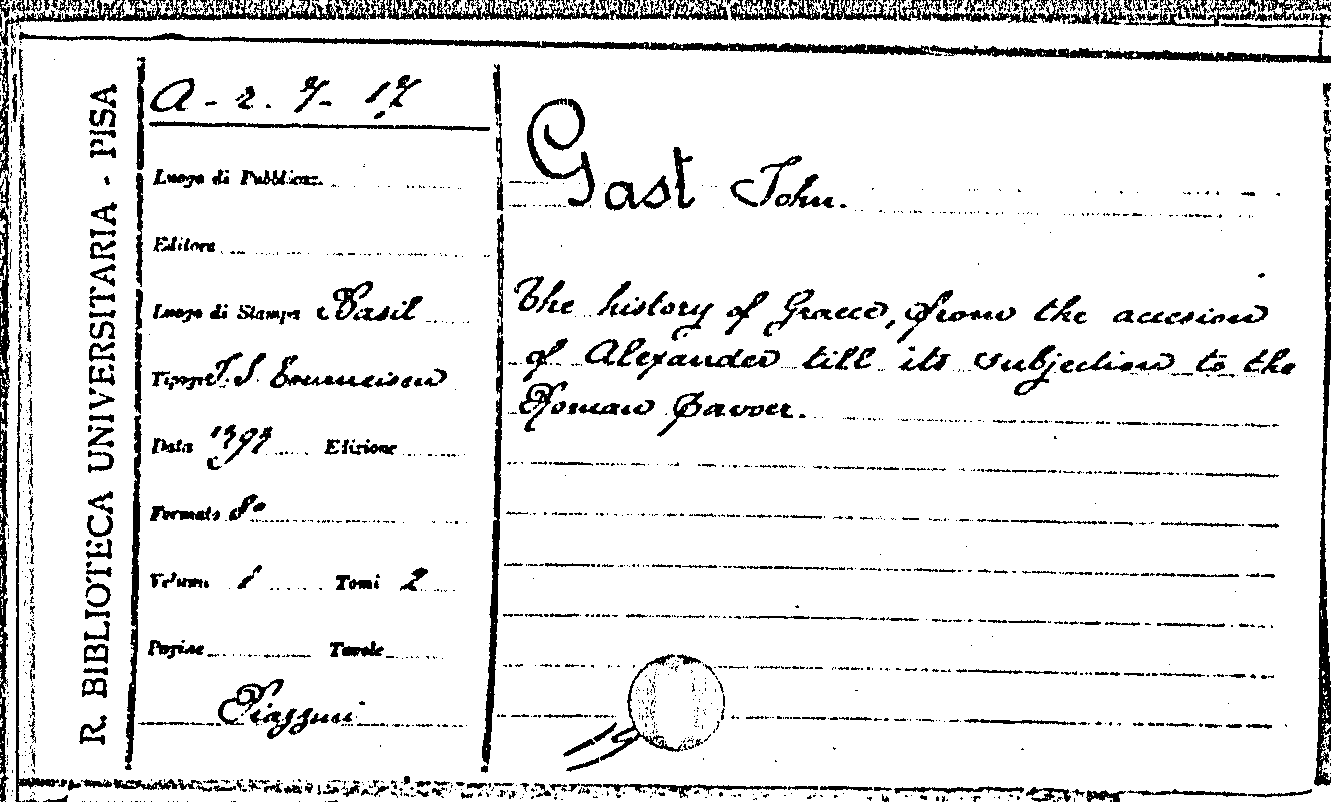 R. BIBLIOTECA UNIVERSITARIA - PISA
A - 2. 7 - 17
Luogo di Pubblicaz.
Editore
Luogo di Stampa Basil
Tipogr. J. J. Tourneisen
Data 1797 Edizione
Formato 8°
Volumi 1 Tomi 2
Pagine Tavole
Piazzini
Gast John.
The history of Graece, from the accesion
of Alexander till its subjection to the
Roman pavver.
19